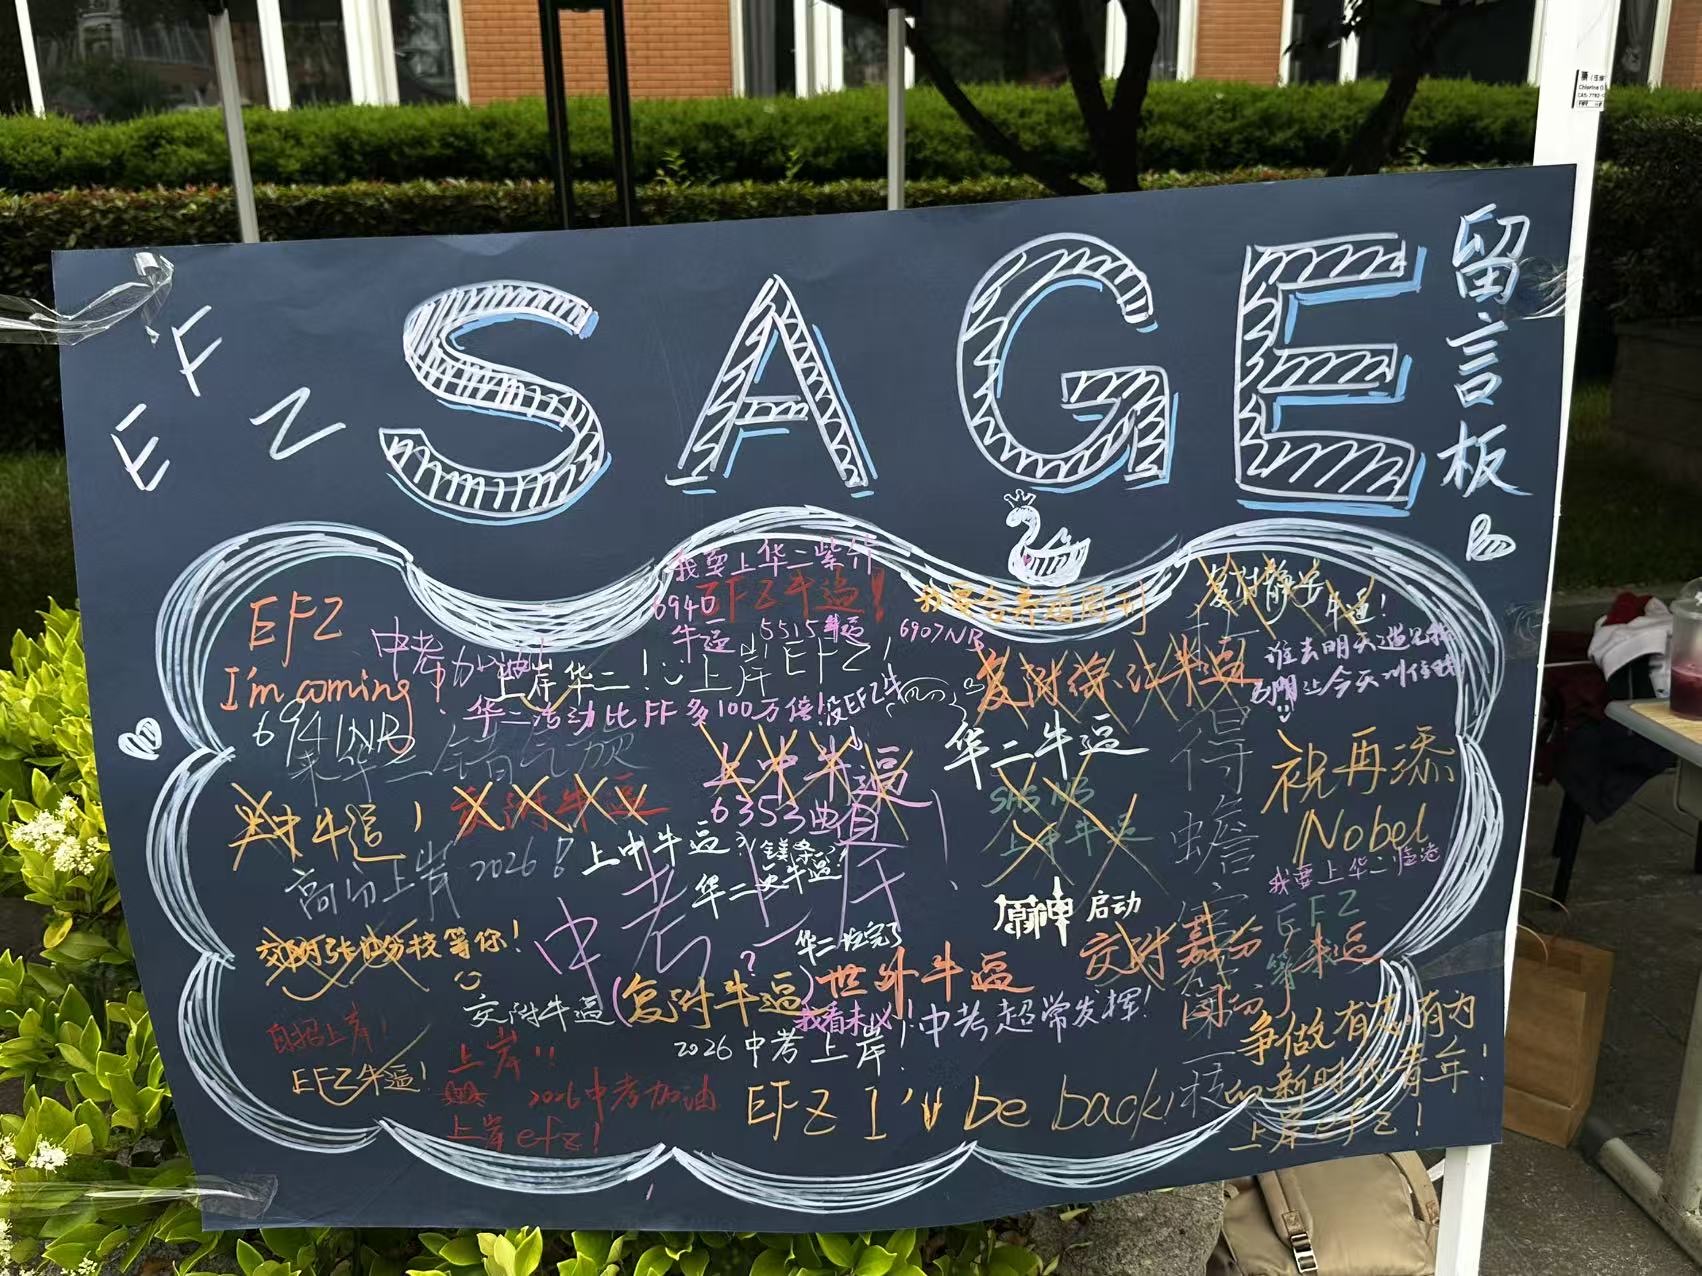 EFZ
SAGE
留言板
我要上华二紫竹
EFZ牛逼!
6940
牛逼
5515牛逼
6907NB
复附静安牛逼!
EFZ
I'm coming!
中考加油
上岸华二!
上岸EFZ!
复附徐汇牛逼
谁去明天
6941NB
华二活动比FF多100万倍!
没EFZ牛
华二牛逼
上中牛逼
6353曲直
SHS NB
上中牛逼
祝再添
Nobel
牛逼!
复附牛逼
高分上岸 2026!
上中牛逼?
华二央牛逼
中考上岸
我要上华二临港
EFZ
等
原神 启动
交附张江分校等你!
华二垃完了
世外牛逼
交附嘉分
牛逼
交附牛逼
(复附牛逼)
我看未必!
中考超常发挥!
2026中考上岸!
自招上岸!
EFZ牛逼!
上岸!!
2026中考加油
上岸efz!
EFZ I'll be back!
争做有志有为
的新时代青年!
上岸efz!